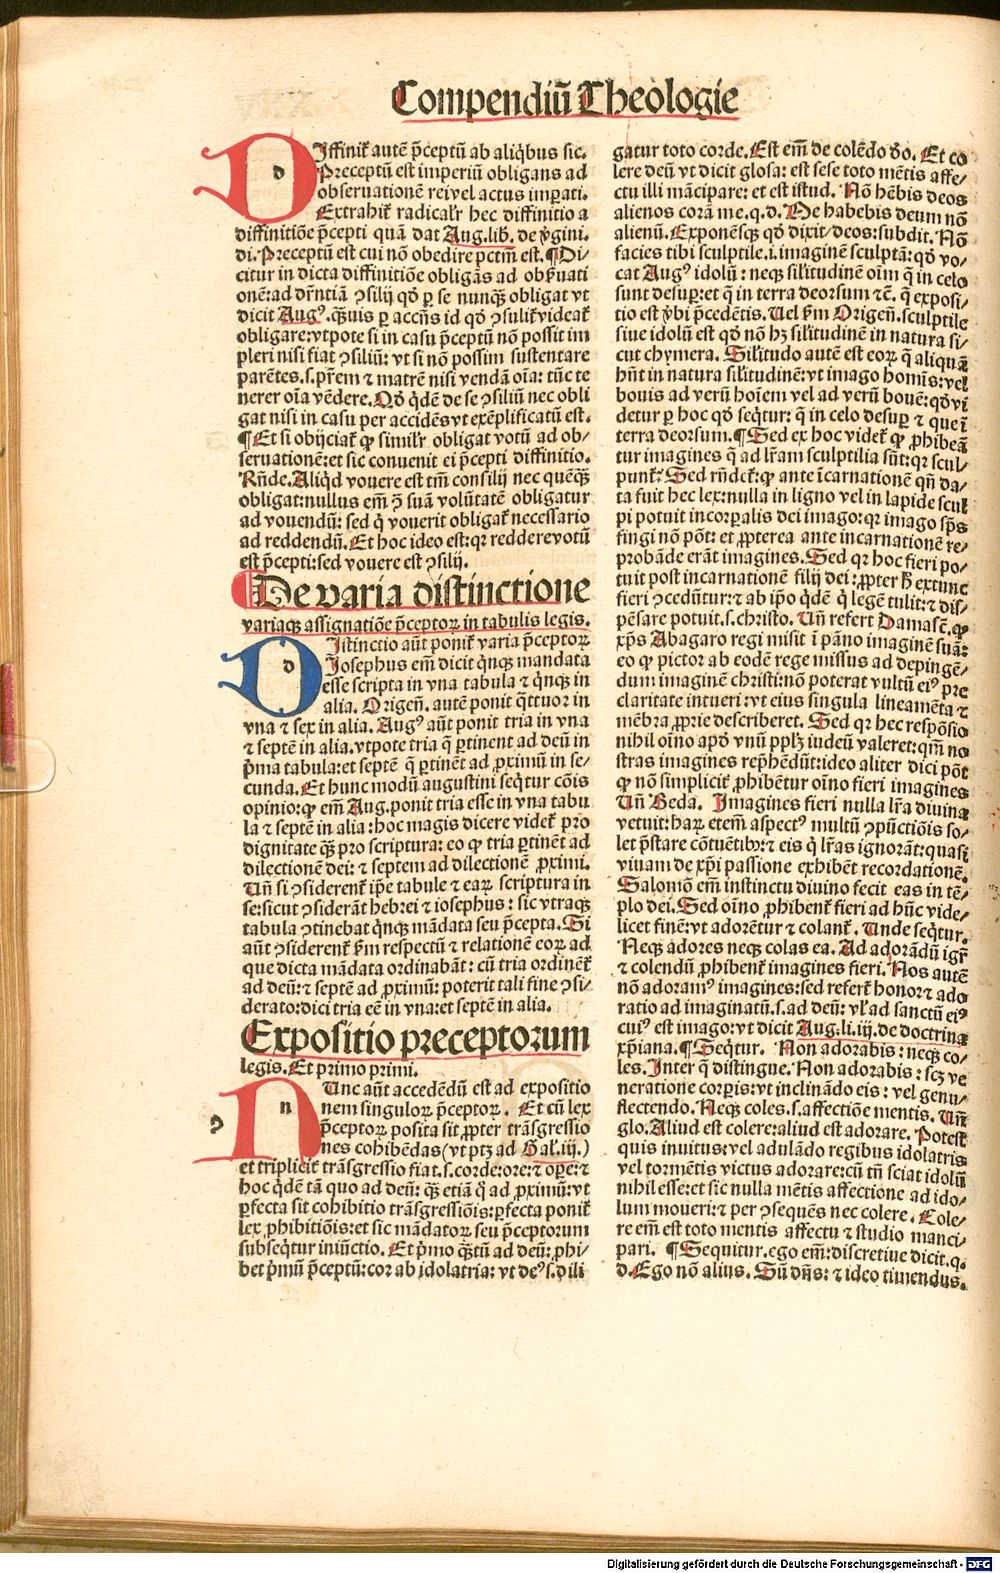 Compendiū Theologie
DIffinit̄ autē p̄ceptū ab aliq̇bus sic.
Preceptū est imperiū obligans ad
observationē rei vel actus imꝑati.
Extrahit̄ radicalr̄ hec diffinitio a
diffinitiōe p̄cepti quā dat Aug. lib. de ṽgini.
di. Preceptū est cui nō obedire pctm̄ est. ¶ Di⸗
citur in dicta diffinitiōe obligās ad obẜuati
onē: ad dr̄ntiā ꝯsilij qd̓ ꝑ se nunqꝫ obligat vt
dicit Augꝰ. q̄uis ꝑ accn̄s id qd̓ ꝯsulit̄ videat̄
obligare: vtpote si in casu p̄ceptū nō possit im
pleri nisi fiat ꝯsiliū: vt si nō possim sustentare
parētes. s. pr̄em ⁊ matrē nisi vendā oīa: tūc te
nerer oīa vēdere. Qd̓ q̇dē de se ꝯsiliū nec obli
gat nisi in casu per accidēs vt exēplificatū est.
¶ Et si obijciat̄ ꝙ simil̓r obligat votū ad ob⸗
seruationē: et sic conuenit ei p̄cepti diffinitio.
Rn̄de. Aliq̇d vouere est tm̄ consilij nec quēqꝫ
obligat: nullus em̄ ꝯ̄ suā volūtatē obligatur
ad vouendū: sed q̇ vouerit obligat̄ necessario
ad reddendū. Et hoc ideo est: qꝛ reddere votū
est p̄cepti: sed vouere est ꝯsilij.
De varia distinctione
variaqꝫ assignatiōe p̄ceptoꝝ in tabulis legis.
DIstinctio aūt ponit̄ varia p̄ceptoꝝ
Josephus em̄ dicit q̇nqꝫ mandata
esse scripta in vna tabula ⁊ q̇nqꝫ in
alia. Origen̄. autē ponit q̇ttuor in
vna ⁊ sex in alia. Augꝰ aūt ponit tria in vna
⁊ septē in alia. vtpote tria q̄ ꝑtinent ad deū in
p̄ma tabula: et septē q̄ ꝑtinēt ad ꝓximū in se⸗
cunda. Et hunc modū augustini seq̇tur cōis
opinio: ꝙ em̄ Aug. ponit tria esse in vna tabu
la ⁊ septē in alia: hoc magis dicere videt̄ pro
dignitate qꝫ pro scriptura: eo ꝙ tria ꝑtinēt ad
dilectionē dei: ⁊ septem ad dilectionē ꝓximi.
Un̄ si ꝯsiderent̄ ip̄e tabule ⁊ eaꝝ scriptura in
se: sicut ꝯsiderāt hebrei ⁊ iosephus: sic vtraqꝫ
tabula ꝯtinebat q̇nqꝫ mādata seu p̄cepta. Si
aūt ꝯsiderent̄ ẜm respectū ⁊ relationē eoꝝ ad
que dicta mādata ordinabāt: cū tria ordinēt̄
ad deū: ⁊ septē ad ꝓximū: poterit tali fine ꝯsi⸗
derato: dici tria eē in vna: et septē in alia.
Expositio preceptorum
legis. Et primo primi.
NUnc aūt accedēdū est ad expositio
nem singuloꝝ p̄ceptoꝝ. Et cū lex
p̄ceptoꝝ posita sit ꝓpter trāsgressio
nes cohibēdas (vt ptꝫ ad Gal. iij.)
et triplicit̄ trāsgressio fiat. s. corde: ore: ⁊ oꝑe: ⁊
hoc q̇dē tā quo ad deū: qꝫ etiā q̇ ad ꝓximū: vt
ꝑfecta sit cohibitio trāsgressiōis: ꝑfecta ponit̄
lex ꝓhibitiōis: et sic mādatoꝝ seu p̄ceptorum
subseq̇tur iniūctio. Et p̄mo qꝫtū ad deū: ꝓhi⸗
bet p̄mū p̄ceptū: cor ab idolatria: vt deꝰ s. dili
gatur toto corde. Est em̄ de colēdo dō. Et co
lere deū vt dicit glosa: est sese toto mētis affe⸗
ctu illi mācipare: et est istud. Nō hēbis deos
alienos corā me. q. d. Me habebis deum nō
alienū. Exponēsqꝫ qd̓ dixit/ deos: subdit. Nō
facies tibi sculptile. i. imaginē sculptā: qd̓ vo⸗
cat Augꝰ idolū: neqꝫ sil̓itudinē oīm q̄ in celo
sunt desuꝑ: et q̄ in terra deorsum ⁊c̄. q̄ exposi⸗
tio est ṽbi p̄cedētis. Uel ẜm Origen̄. sculptile
siue idolū est qd̓ nō hꝫ sil̓itudinē in natura si⸗
cut chymera. Similitudo autē est eoꝝ q̄ aliquā
hn̄t in natura sil̓itudinē: vt imago homīs: vel
bouis ad verū hoīem vel ad verū bouē: qd̓ vi⸗
detur ꝑ hoc qd̓ seq̇tur: q̄ in celo desuꝑ ⁊ que ī
terra deorsum. ¶ Sed ex hoc videt̄ ꝙ ꝓhibeā
tur imagines q̄ ad lr̄am sculptilia sūt: qꝛ scul⸗
punt̄. Sed rn̄det̄: ꝙ ante īcarnationē qn̄ da⸗
ta fuit hec lex: nulla in ligno vel in lapide scul
pi potuit incorꝑalis dei imago: qꝛ imago sp̄s
fingi nō pōt: et ꝓpterea ante incarnationē re⸗
probāde erāt imagines. Sed qꝛ hoc fieri po⸗
tuit post incarnationē filij dei: ꝓpter ꝉ extunc
fieri ꝯcedūtur: ⁊ ab ip̄o q̇dē q̇ legē tulit: ⁊ dis⸗
pēsare potuit. s. christo. Un̄ refert Damasē. ꝙ
xp̄s Abagaro regi misit ī pāno imaginē suā:
eo ꝙ pictor ab eodē rege missus ad depingē⸗
dum imaginē christi: nō poterat vultū eiꝰ pre
claritate intueri: vt eius singula lineamēta ⁊
mēbra ꝓprie describeret. Sed qꝛ hec respōsio
nihil oīno apd̓ vnū pplꝫ iudeū valeret: qm̄ no
stras imagines rep̄hēdūt: ideo aliter dici pōt
ꝙ nō simplicit̄ ꝓhibētur oīno fieri imagines
Un̄ Beda. Imagines fieri nulla lr̄a diuina
vetuit: haꝝ etem̄ aspectꝰ multū ꝯpūctiōis so⸗
let p̄stare cōtuētibꝫ: ⁊ eis q̇ lr̄as ignorāt: quasi
viuam de xp̄i passione exhibēt recordationē.
Salomō em̄ instinctu diuino fecit eas in tē⸗
plo dei. Sed oīno ꝓhibent̄ fieri ad hūc vide⸗
licet finē: vt adorētur ⁊ colant̄. Unde seq̇tur.
Neqꝫ adores neqꝫ colas ea. Ad adorādū igr̄
⁊ colendū ꝓhibent̄ imagines fieri. Nos autē
nō adoramꝰ imagines: sed refert̄ honor ⁊ ado
ratio ad imaginatū. s. ad deū: vl̓ ad sanctū eiꝰ
cuiꝰ est imago: vt dicit Aug. li. iij. de doctrina
xp̄iana. ¶ Seq̇tur. Non adorabis: neqꝫ co⸗
les. Inter q̄ distingue. Non adorabis: scꝫ ve
neratione corꝑis: vt inclinādo eis: vel genu⸗
flectendo. Neqꝫ coles. s. affectiōe mentis. Un̄
glo. Aliud est colere: aliud est adorare. Potest
quis inuitus: vel adulādo regibus idolatris
vel tormētis victus adorare: cū tn̄ sciat idolū
nihil esse: et sic nulla mētis affectione ad ido⸗
lum moueri: ⁊ per ꝯsequēs nec colere. Cole⸗
re em̄ est toto mentis affectu ⁊ studio manci⸗
pari. ¶ Sequitur. ego em̄: discretiue dicit. q.
d. Ego nō alius. Sū dn̄s: ⁊ ideo timendus.
Digitalisierung gefördert durch die Deutsche Forschungsgemeinschaft - DFG